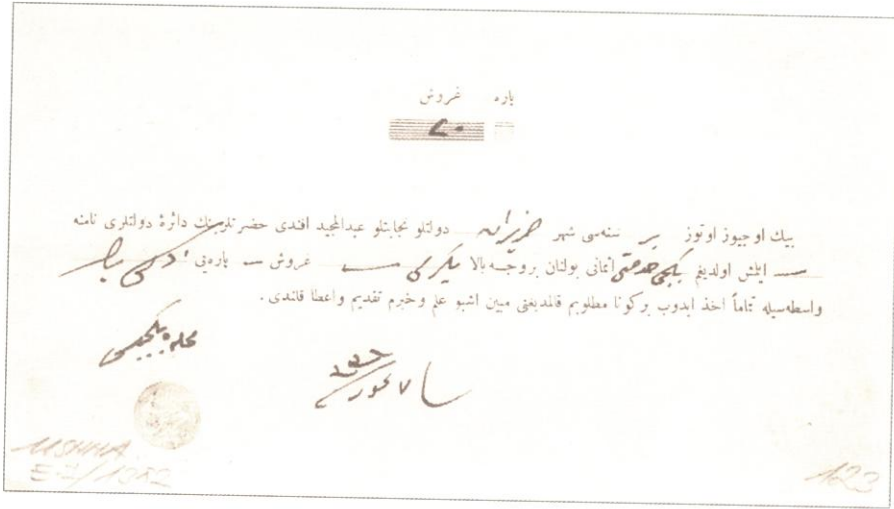 پاره غروش
٢٠
بیك اوچیوز اوتوز بر سنه‌سی شهر حزیران دولتلو نجابتلو عبدالمجید افندی حضرتلرینك دائرهٔ دولتلری نامنه
ایلمش اولدیغم بكجی خدمتی اثمانی بولنان بروجه‌بالا یكرمی غروش پاره‌یی
واسطه‌سیله تماماً اخذ ایدوب بركونا مطلوبم قالمدیغنی مبین اشبو علم و خبرم تقدیم واعطا قلندی.
محله بكجیسی
١٣٣١
٧
MSHHA
E-I/1382
123